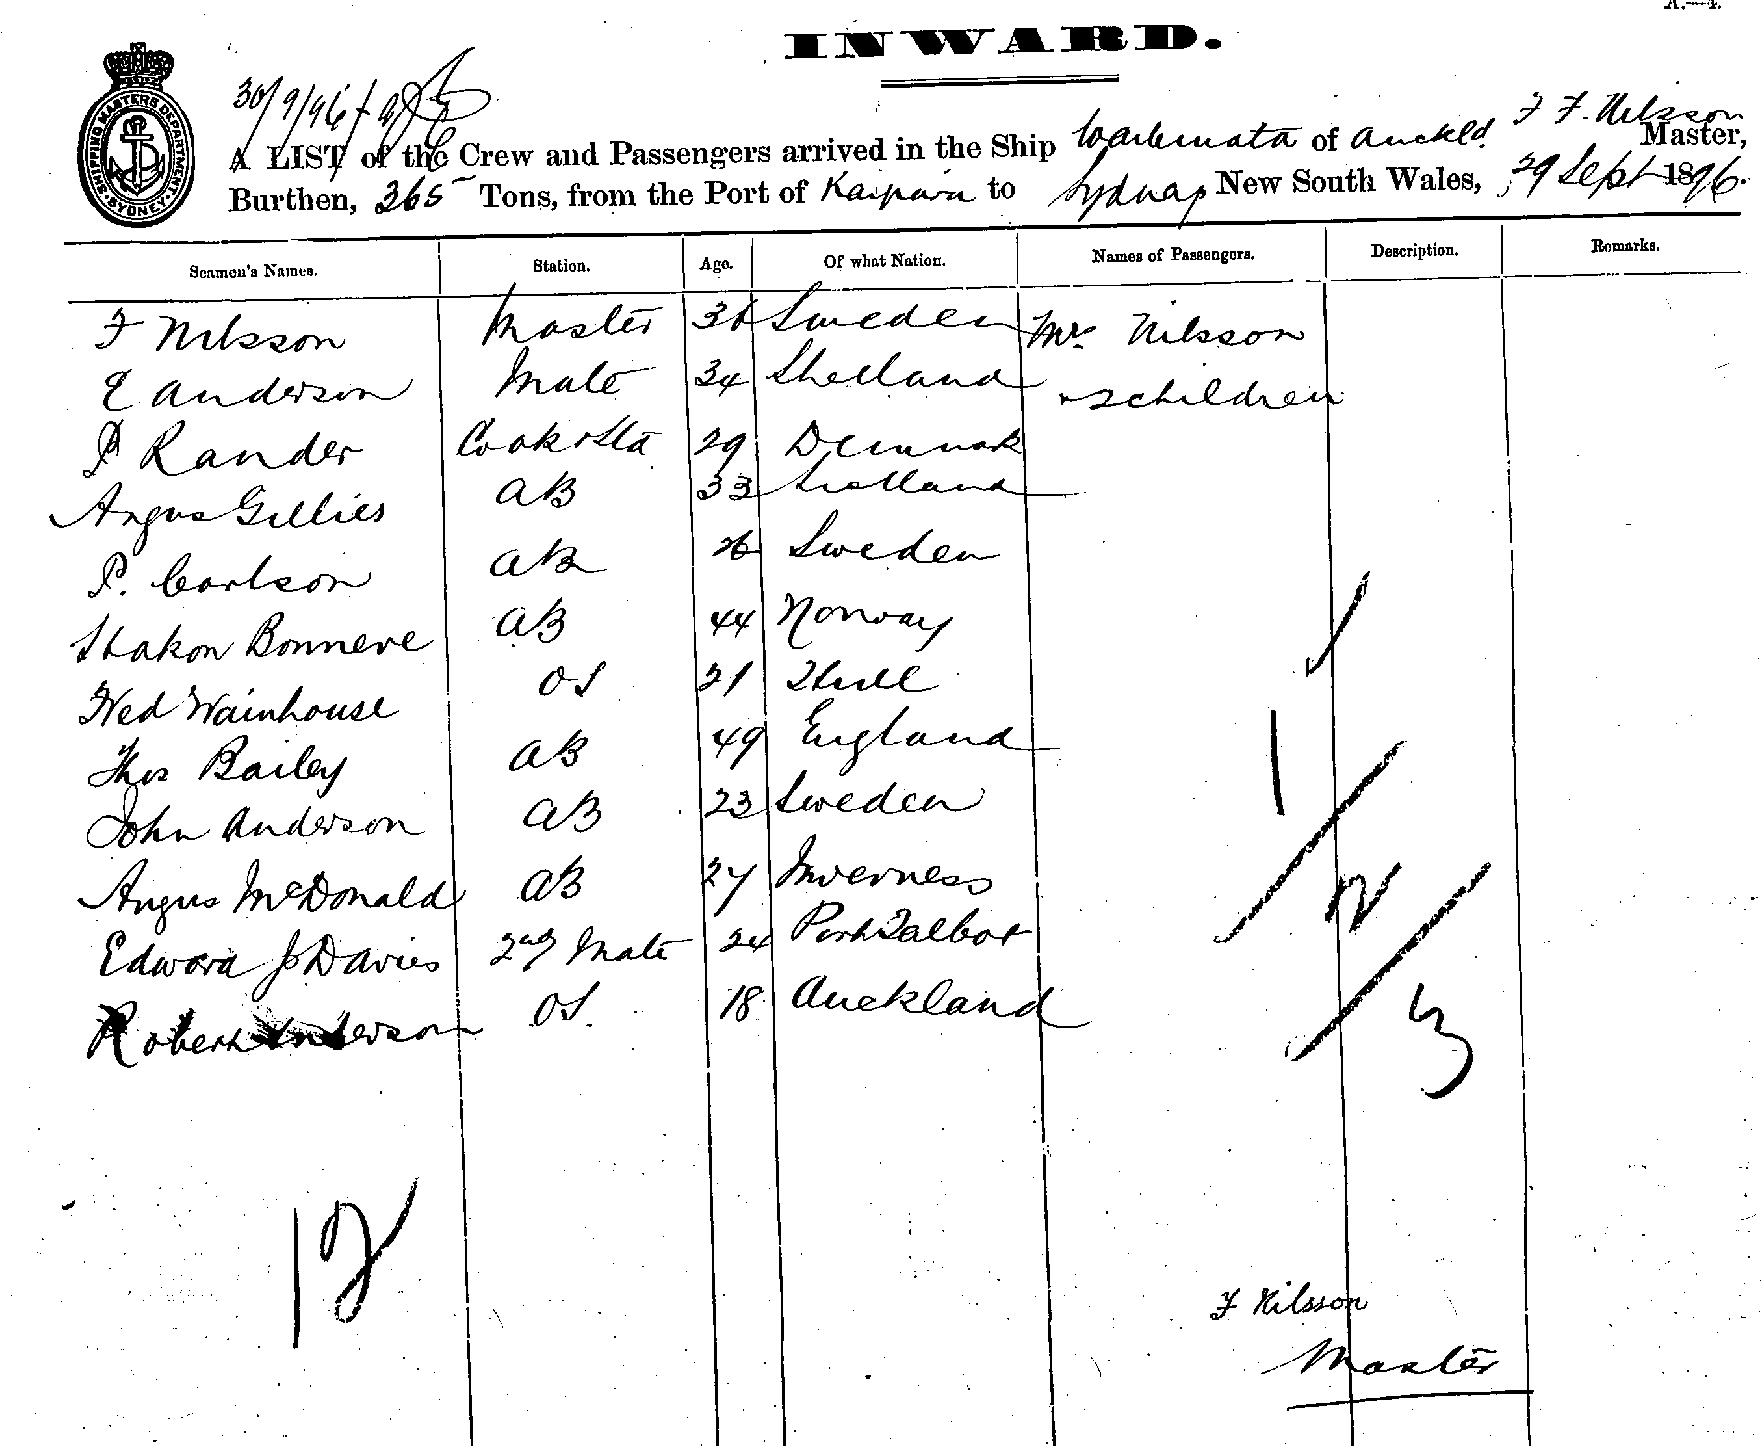 A.—4.
INWARD.
SHIPPING MASTERS DEPARTMENT
SYDNEY
30/9/96
F. Nilsson
A LIST of the Crew and Passengers arrived in the Ship Waitemata of Auckld. Master,
Burthen, 365 Tons, from the Port of Kaipara to Sydney New South Wales, 29 Sept 1896.
Seamen's Names. Station. Age. Of what Nation. Names of Passengers. Description. Remarks.
F Nilsson Master 36 Sweden Mrs Nilsson
E Anderson Mate 34 Shetland + 2 children
P Rander Cook & Std 29 Denmark
Angus Gillies AB 33 Scotland
P. Carlson AB 26 Sweden
Hakon Bonneve AB 44 Norway
Fred Wainhouse OS 21 Hull
Thos Bailey AB 49 England
John Anderson AB 23 Sweden
Angus McDonald AB 27 Inverness
Edward J Davies 2nd Mate 24 Port Talbot
Robert Anderson OS. 18 Auckland
1
2
3
12
F Nilsson
Master